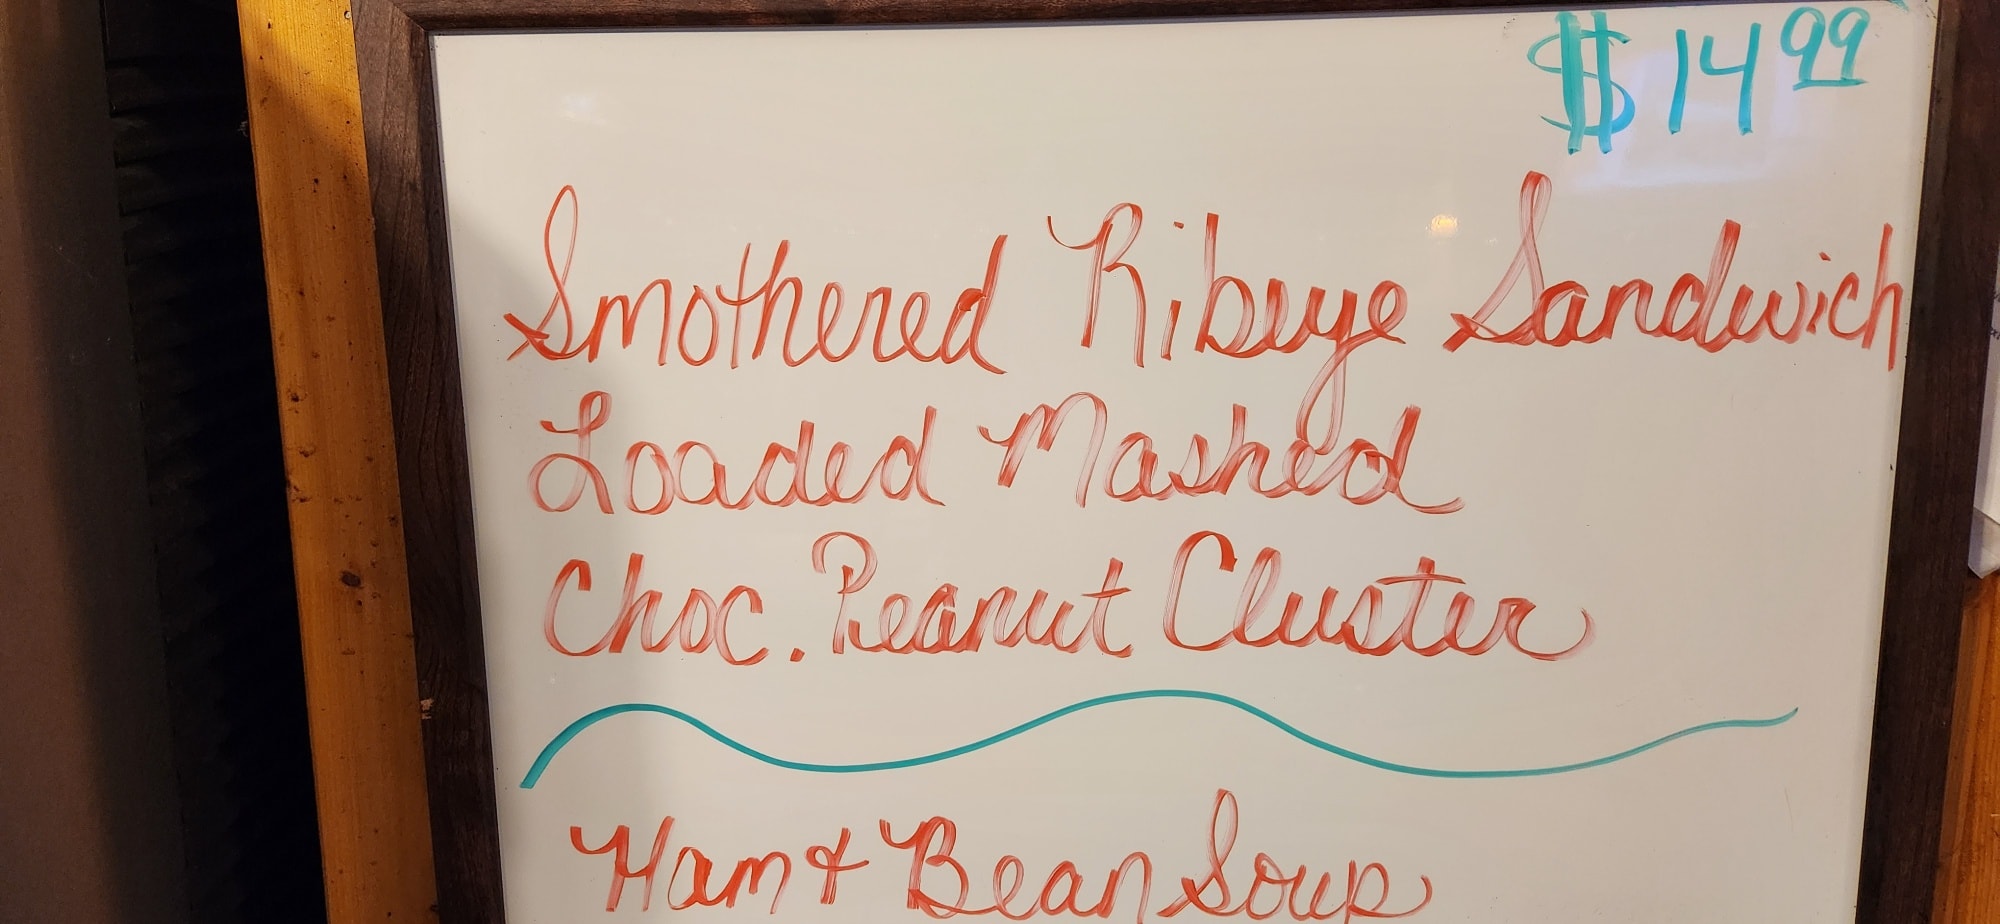 $14.99
Smothered Ribeye Sandwich
Loaded Mashed
Choc. Peanut Cluster
Ham & Bean Soup